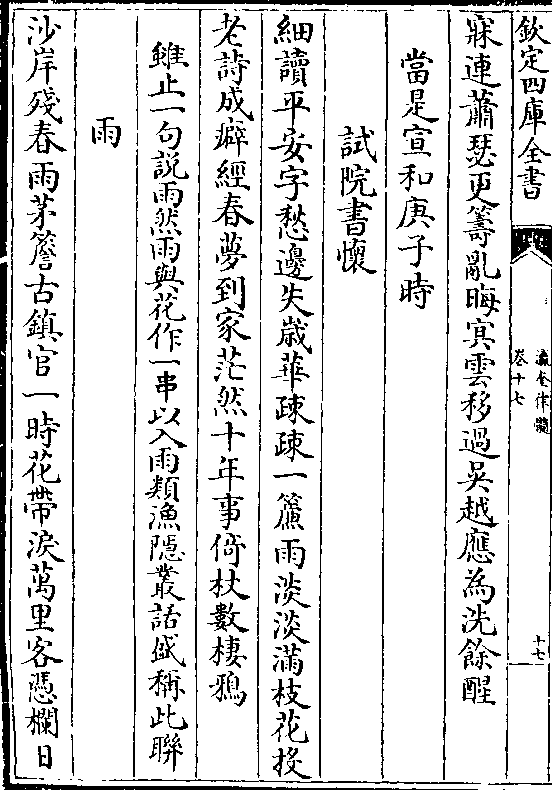 欽定四庫全書
瀛奎律髓
卷十七
十七
寐連蕭瑟更籌亂晦冥雲移過吳越應為洗餘酲
當是宣和庚子時
試院書懷
細讀平安字愁邊失歲華疎疎一簾雨淡淡滿枝花投
老詩成癖經春夢到家茫然十年事倚杖數棲鴉
雖止一句説雨然雨與花作一串以入雨類漁隱叢話盛稱此聯
雨
沙岸殘春雨茅簷古鎮官一時花帶淚萬里客憑欄日